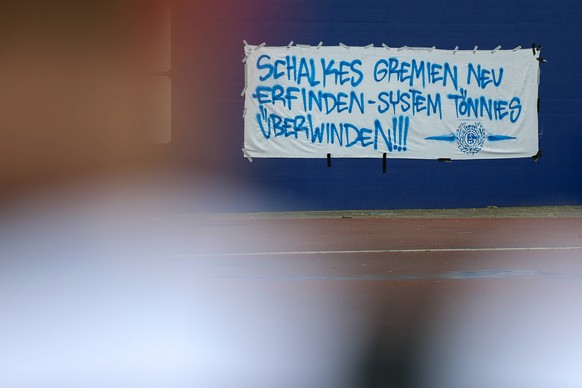 SCHALKES GREMIEN NEU
ERFINDEN-SYSTEM TÖNNIES
ÜBERWINDEN!!!
G